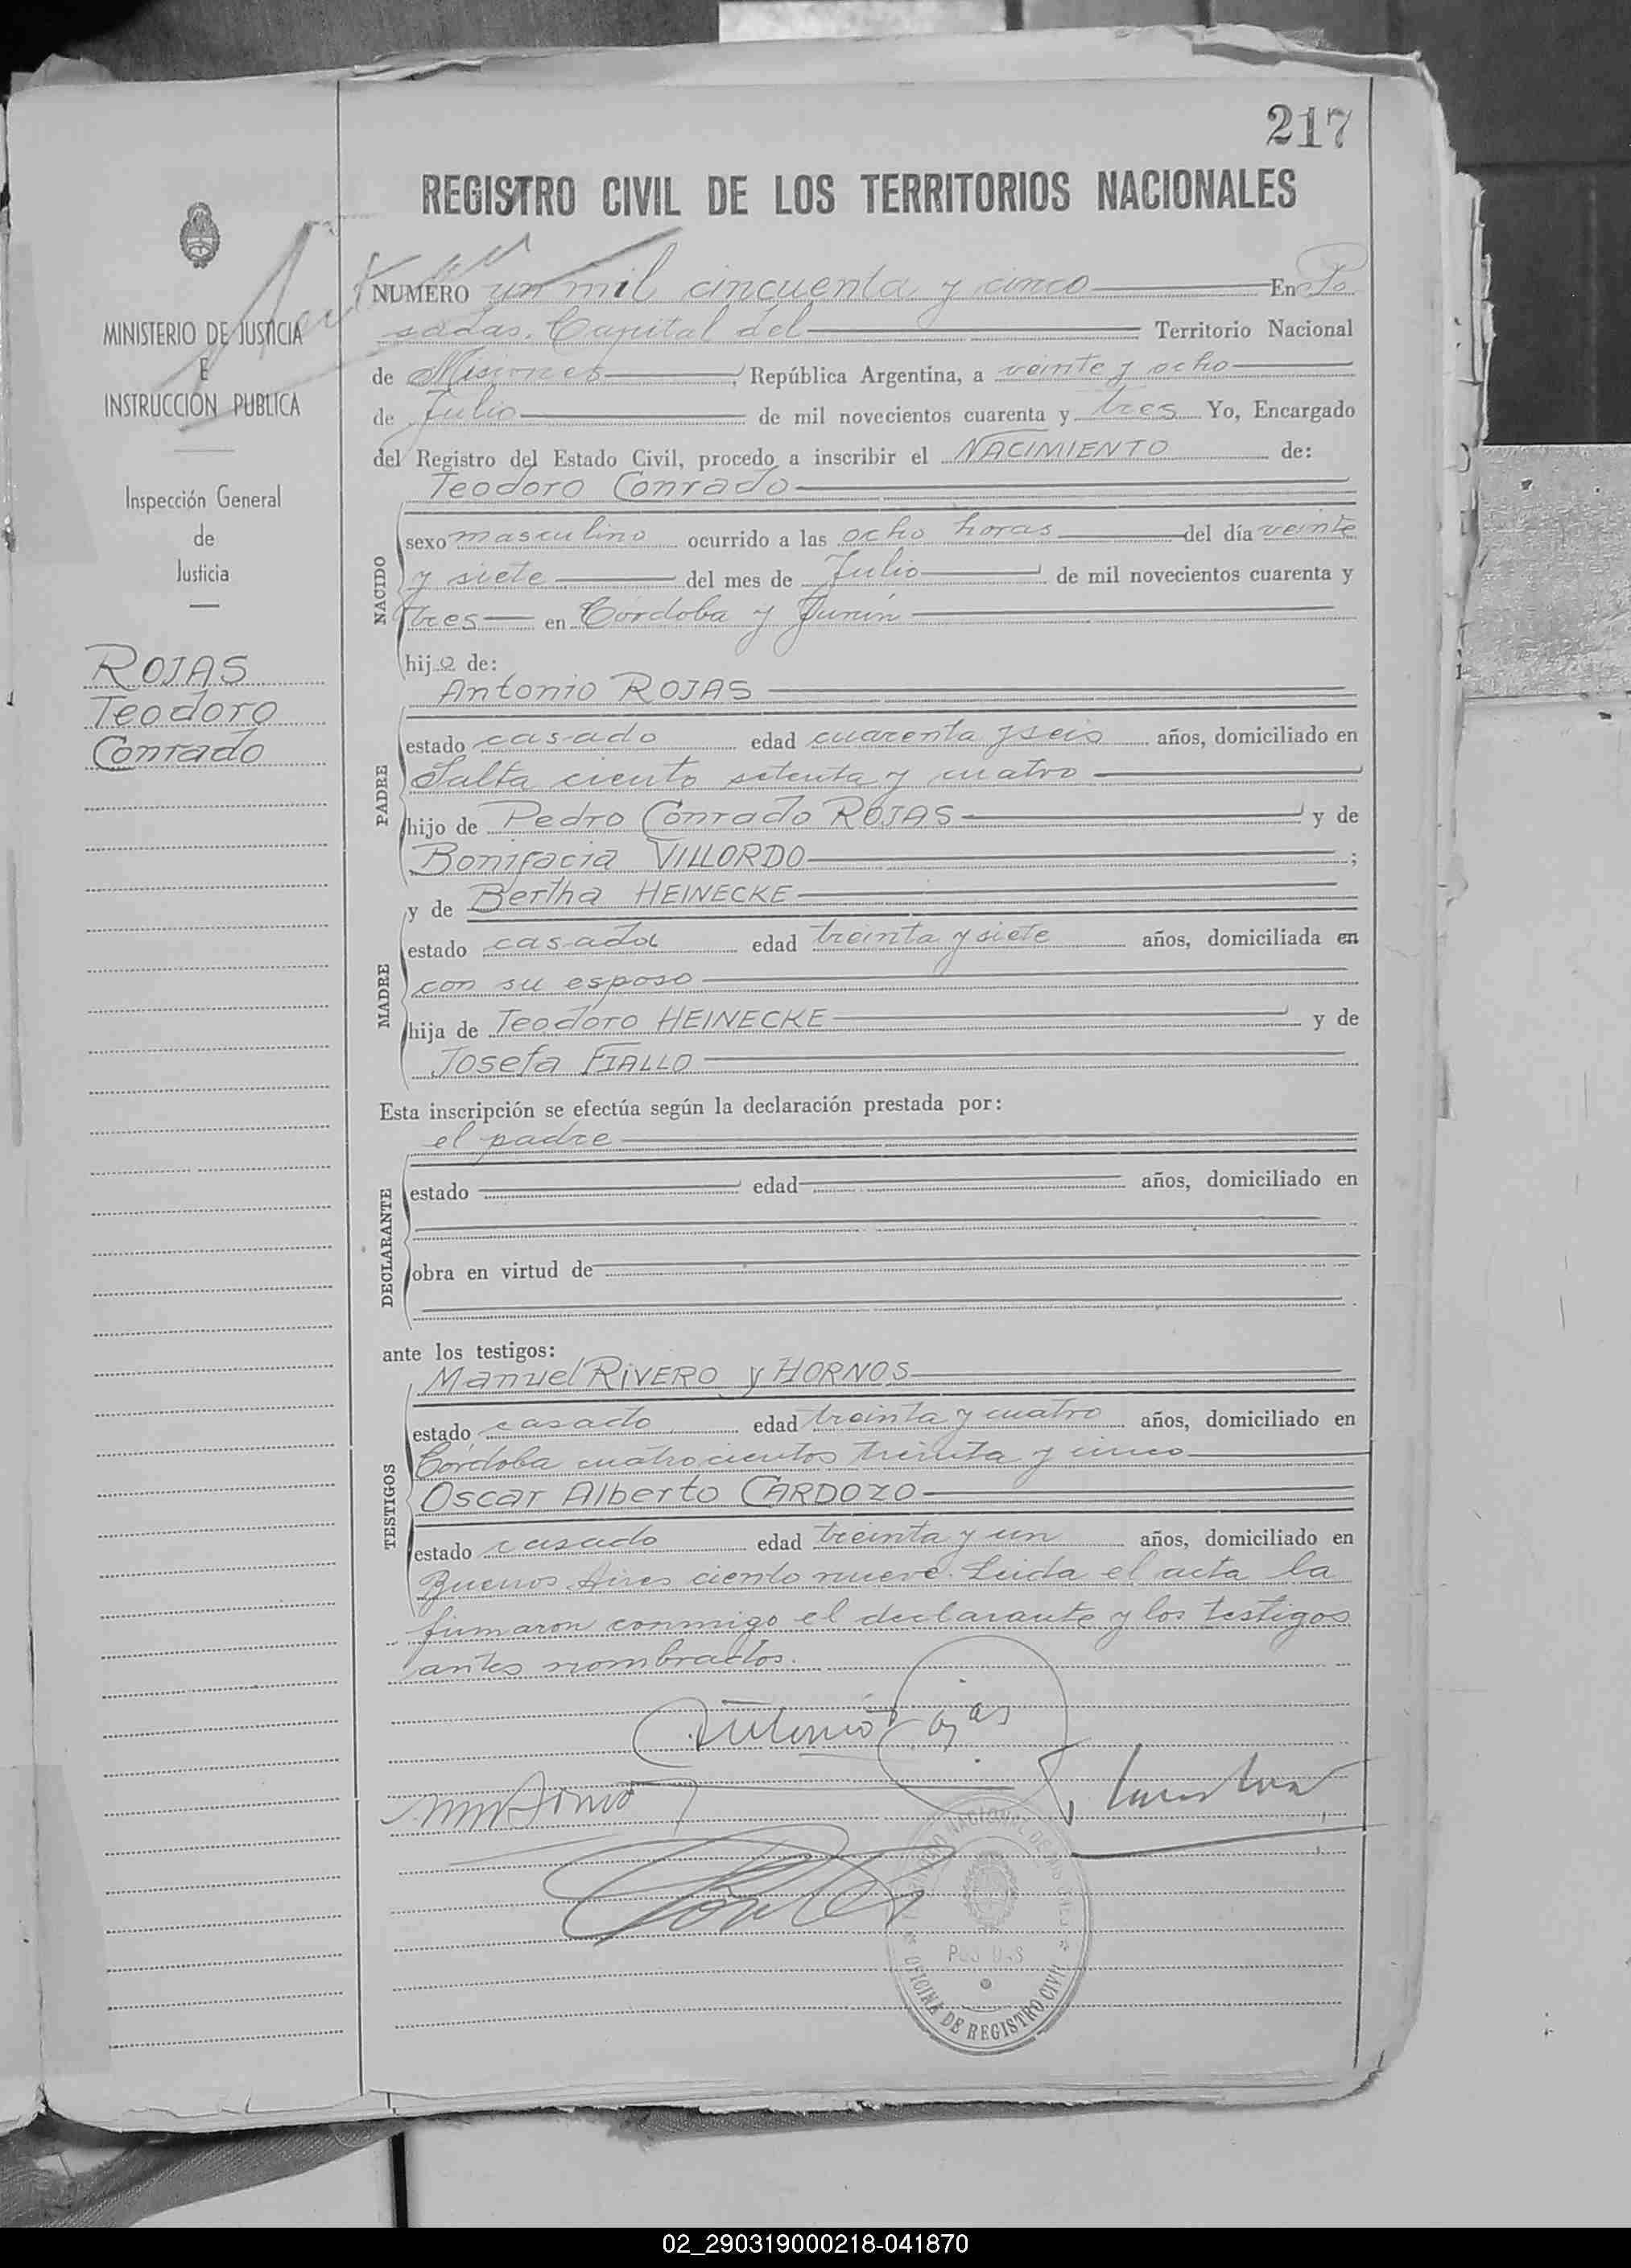 217
REGISTRO CIVIL DE LOS TERRITORIOS NACIONALES
MINISTERIO DE JUSTICIA
E
INSTRUCCIÓN PUBLICA
Inspección General
de
Justicia
ROJAS
Teodoro
Conrado
NUMERO un mil cincuenta y cinco En Po
sadas, Capital del Territorio Nacional
de Misiones, República Argentina, a veinte y ocho
de Julio de mil novecientos cuarenta y tres Yo, Encargado
del Registro del Estado Civil, procedo a inscribir el NACIMIENTO de:
Teodoro Conrado
NACIDO
sexo masculino ocurrido a las ocho horas del día veinte
y siete del mes de Julio de mil novecientos cuarenta y
tres en Córdoba y Junín
hijo de:
Antonio ROJAS
PADRE
estado casado edad cuarenta y seis años, domiciliado en
Salta ciento setenta y cuatro
hijo de Pedro Conrado ROJAS y de
Bonifacia VILLORDO;
y de Bertha HEINECKE
MADRE
estado casada edad treinta y siete años, domiciliada en
con su esposo
hija de Teodoro HEINECKE y de
Josefa FIALLO
Esta inscripción se efectúa según la declaración prestada por:
el padre
DECLARANTE
estado edad años, domiciliado en
obra en virtud de
ante los testigos:
Manuel RIVERO y HORNOS
TESTIGOS
estado casado edad treinta y cuatro años, domiciliado en
Córdoba cuatrocientos treinta y cinco
Oscar Alberto CARDOZO
estado casado edad treinta y un años, domiciliado en
Buenos Aires ciento nueve. Leida el acta la
firmaron conmigo el declarante y los testigos
antes nombrados.
Antonio Rojas
OFICINA DE REGISTRO CIVIL
02_290319000218-041870